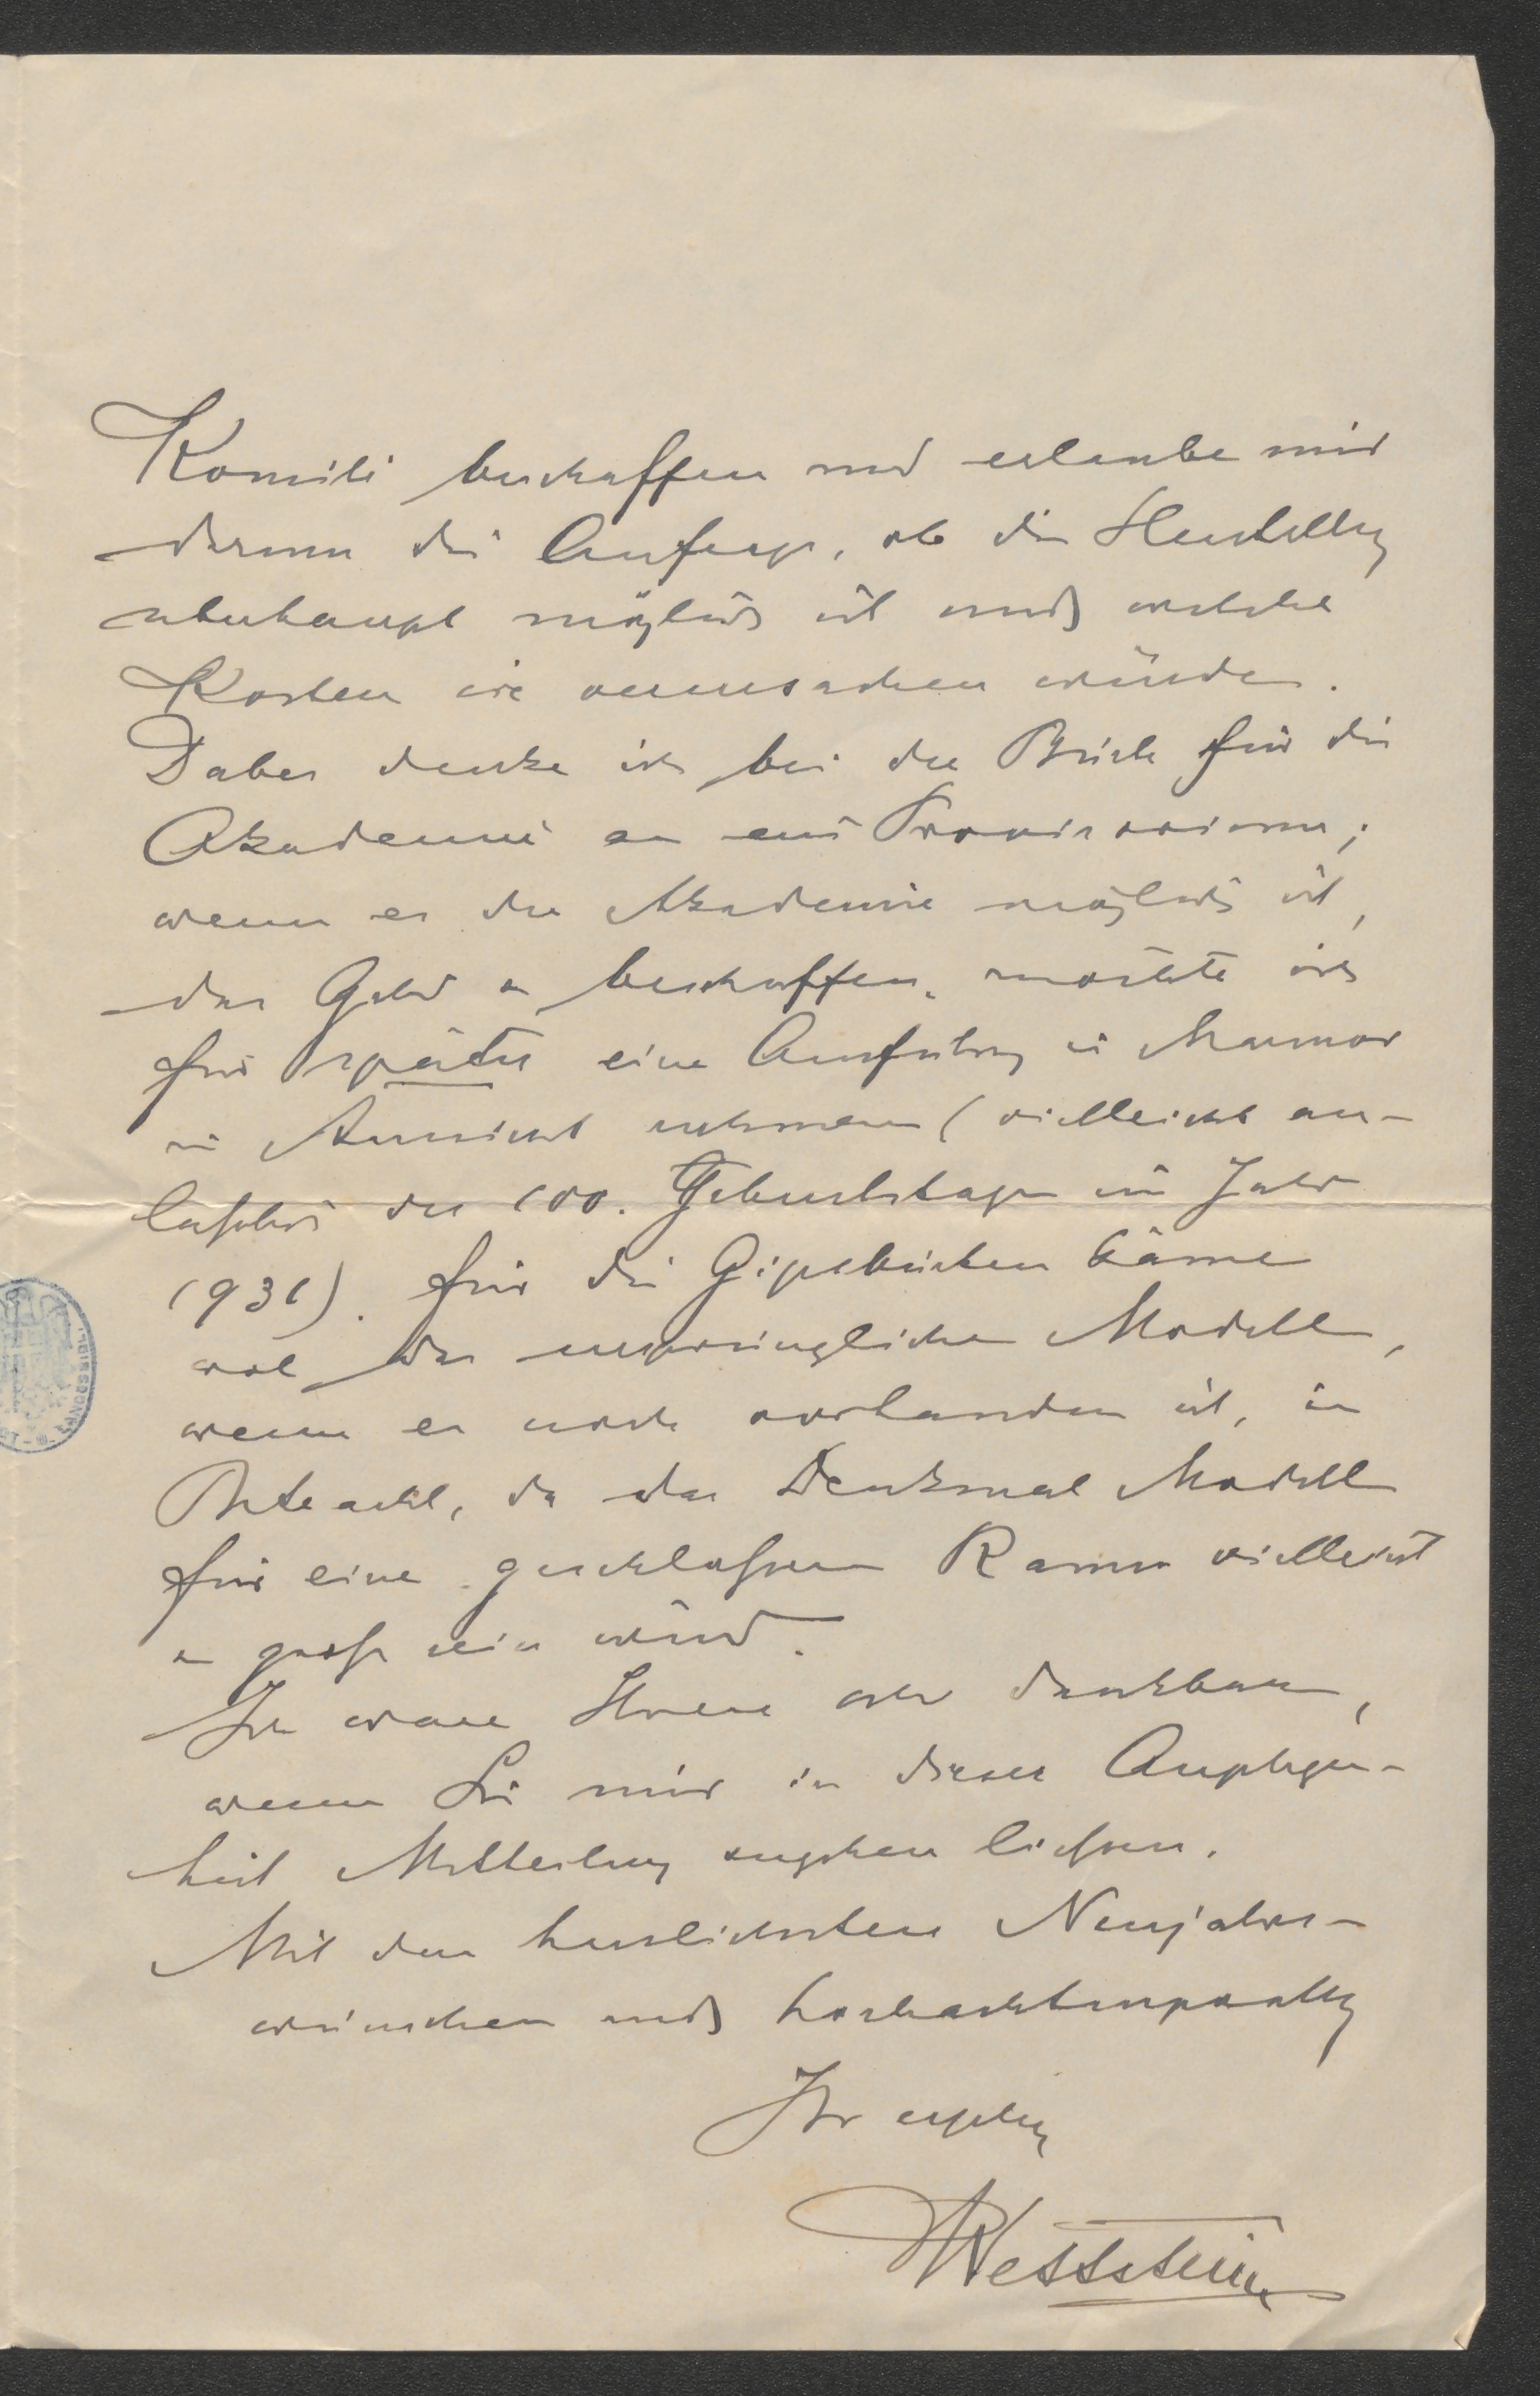 Komité beschaffen und erlaube mir
darum die Anfrage, ob die Herstellung
überhaupt möglich ist und welche
Kosten sie verursachen würde.
Dabei denke ich bei der Büste für die
Akademie an ein Provisorium;
wenn es der Akademie möglich ist,
das Geld zu beschaffen, möchte ich
für später eine Ausführung in Marmor
in Aussicht nehmen (vielleicht an-
läßlich des 100. Geburtstages im Jahr
1931). Für die Gipsbüsten käme
wol das ursprüngliche Modell,
wenn es noch vorhanden ist, in
Betracht, da das Denkmal Modell
für eine geschlossenen Raum vielleicht
zu groß sein wird.
Ich wäre Ihnen sehr dankbar,
wenn Sie mir in dieser Angelegen-
heit Mitteilung zugehen ließen.
Mit den herzlichsten Neujahrs-
wünschen und hochachtungsvoll
Ihr ergebener
RWettstein